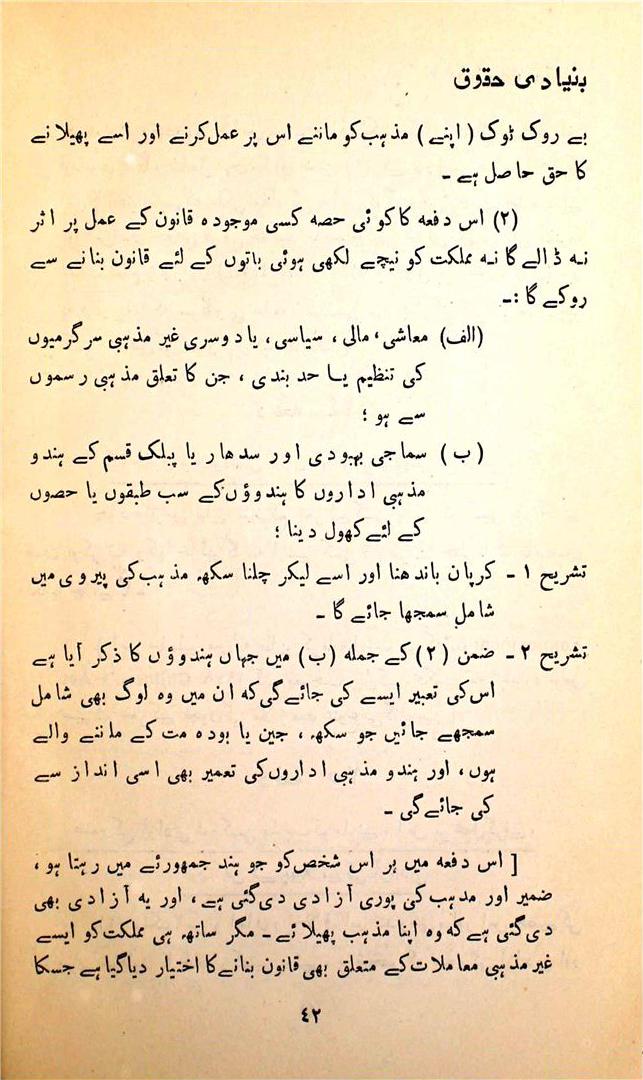 بنیادی حقوق
بے روک ٹوک (اپنے) مذہب کو ماننے اس پر عمل کرنے اور اسے پھیلانے
کا حق حاصل ہے ۔
(۲) اس دفعہ کا کوئی حصہ کسی موجودہ قانون کے عمل پر اثر
نہ ڈالے گا نہ مملکت کو نیچے لکھی ہوئی باتوں کے لئے قانون بنانے سے
روکے گا :۔
(الف) معاشی، مالی، سیاسی، یا دوسری غیر مذہبی سرگرمیوں
کی تنظیم یا حد بندی، جن کا تعلق مذہبی رسموں
سے ہو ؛
(ب) سماجی بہبودی اور سدھار یا پبلک قسم کے ہندو
مذہبی اداروں کا ہندوؤں کے سب طبقوں یا حصوں
کے لئے کھول دینا ؛
تشریح ۱ - کرپان باندھنا اور اسے لیکر چلنا سکھ مذہب کی پیروی میں
شامل سمجھا جائے گا ۔
تشریح ۲ - ضمن (۲) کے جملہ (ب) میں جہاں ہندوؤں کا ذکر آیا ہے
اس کی تعبیر ایسے کی جائے گی کہ ان میں وہ لوگ بھی شامل
سمجھے جائیں جو سکھ، جین یا بودھ مت کے ماننے والے
ہوں، اور ہندو مذہبی اداروں کی تعمیر بھی اسی انداز سے
کی جائے گی ۔
[ اس دفعہ میں ہر اس شخص کو جو ہند جمہورئے میں رہتا ہو،
ضمیر اور مذہب کی پوری آزادی دی گئی ہے، اور یہ آزادی بھی
دی گئی ہے کہ وہ اپنا مذہب پھیلائے ۔ مگر ساتھ ہی مملکت کو ایسے
غیر مذہبی معاملات کے متعلق بھی قانون بنانے کا اختیار دیا گیا ہے جسکا
۴۲